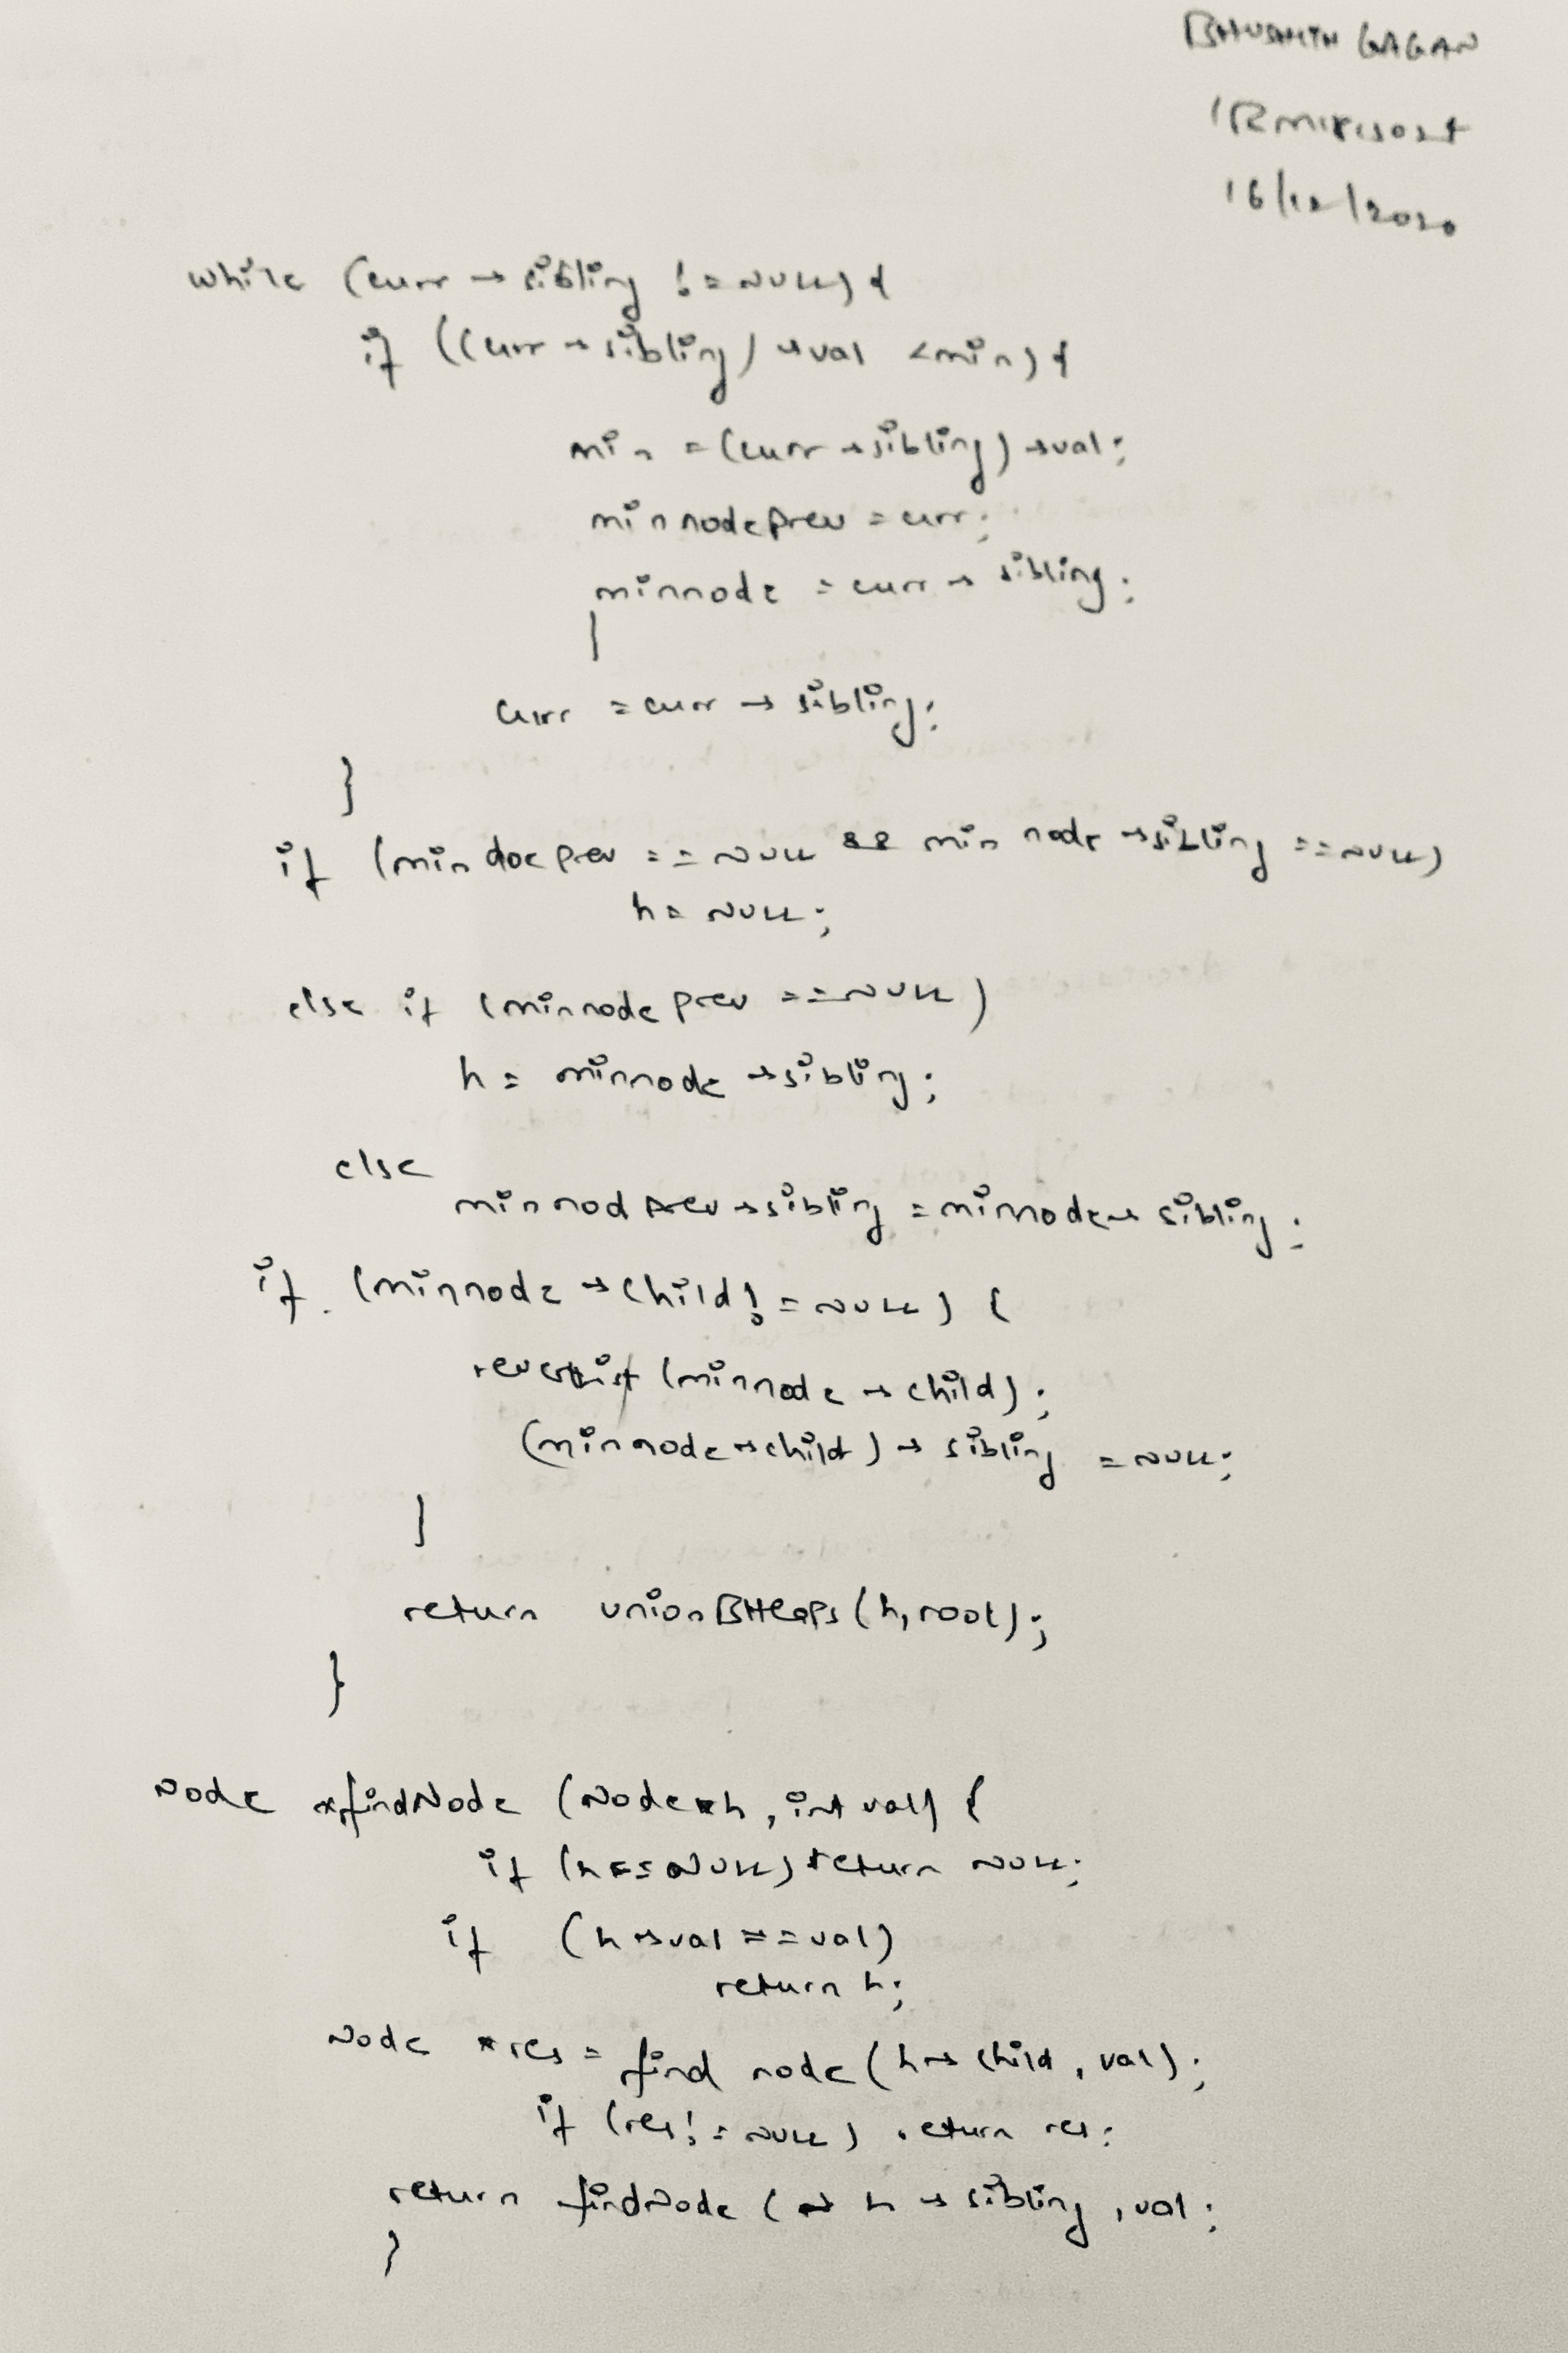 GAGAN
16/12/2020
while (curr → sibling != NULL) {
if ((curr → sibling) → val < min) {
min = (curr → sibling) → val;
minnodeprev = curr;
minnode = curr → sibling;
}
curr = curr → sibling;
}
if (mindocprev == NULL && min node → sibling == NULL)
h = NULL;
else if (minnode prev == NULL)
h = minnode → sibling;
else
minnod prev → sibling = minnode → sibling;
if (minnode → child != NULL) {
(minnode → child);
(minnode → child) → sibling = NULL;
}
return unionBHeaps (h, root);
}
Node *findNode (Node *h, int val) {
if (h == NULL) return NULL;
if (h → val == val)
return h;
Node *res = find node (h → child, val);
if (res != NULL) return res;
return findNode (h → sibling, val;
}